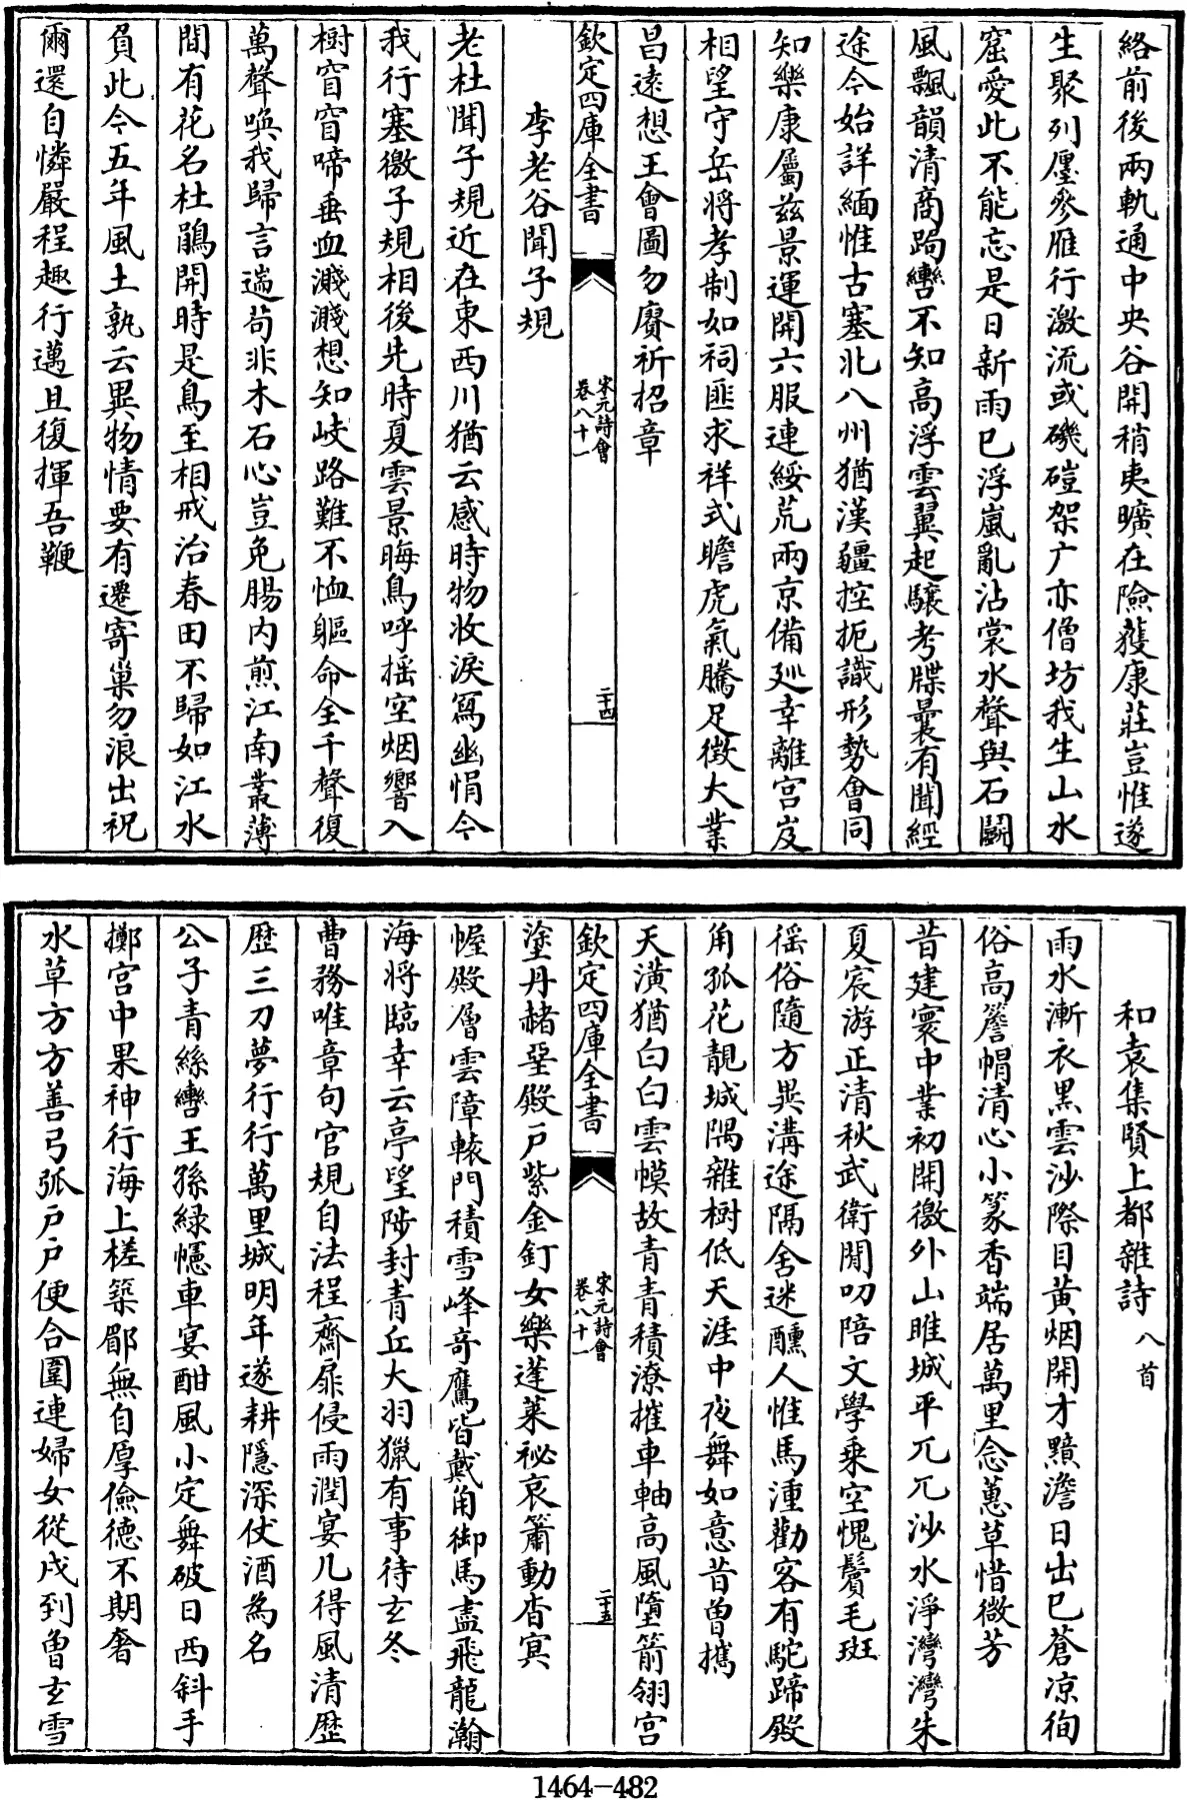 絡前後兩軌通中央谷開稍夷曠在險獲康莊豈惟遂
生聚列廛參雁行激流或磯磑架广亦僧坊我生山水
窟愛此不能忘是日新雨已浮嵐亂沾裳水聲與石鬭
風飄韻清商跼轡不知高浮雲翼起驤考牒曩有聞經
途今始詳緬惟古塞北八州猶漢疆控扼識形勢會同
知樂康屬兹景運開六服連綏荒兩京備廵幸離宫岌
相望守岳將孝制如祠匪求祥式瞻虎氣騰足徴大業
昌逺想王會圖勿賡祈招章
欽定四庫全書
宋元詩會
卷八十一
二十四
李老谷聞子規
老杜聞子規近在東西川猶云感時物收淚寫幽悁今
我行塞徼子規相後先時夏雲景晦鳥呼揺空烟響入
樹窅窅啼垂血濺濺想知岐路難不恤軀命全千聲復
萬聲喚我歸言遄苟非木石心豈免腸内煎江南叢薄
間有花名杜鵑開時是鳥至相戒治春田不歸如江水
負此今五年風土孰云異物情要有遷寄巢勿浪出祝
爾還自憐嚴程趣行邁且復揮吾鞭
和袁集賢上都雜詩八首
雨水漸衣黒雲沙際目黄烟開才黯澹日出已蒼凉徇
俗高簷帽清心小篆香端居萬里念蕙草惜微芳
昔建寰中業初開徼外山睢城平兀兀沙水淨灣灣朱
夏宸游正清秋武衛閒叨陪文學乗空愧鬢毛斑
徭俗隨方異溝途隔舍迷醺人惟馬湩勸客有駝蹄殿
角孤花靚城隅雜樹低天涯中夜舞如意昔曾擕
天潢猶白白雲幙故青青積潦摧車軸高風墮箭翎宫
欽定四庫全書
宋元詩會
卷八十一
二十五
塗丹赭堊殿户紫金釘女樂蓬萊秘哀簫動杳㝠
幄殿層雲障轅門積雪峰竒鷹皆戴角御馬盡飛龍瀚
海將臨幸云亭望陟封青丘大羽獵有事待玄冬
曹務唯章句官規自法程齋扉侵雨潤宴几得風清歴
歴三刀夢行行萬里城明年遂耕隱深仗酒為名
公子青絲轡王孫緑幰車宴酣風小定舞破日西斜手
擲宫中果神行海上槎築郿無自厚儉徳不期奢
水草方方善弓弧户户便合圍連婦女從戍到曽玄雪
1464-482